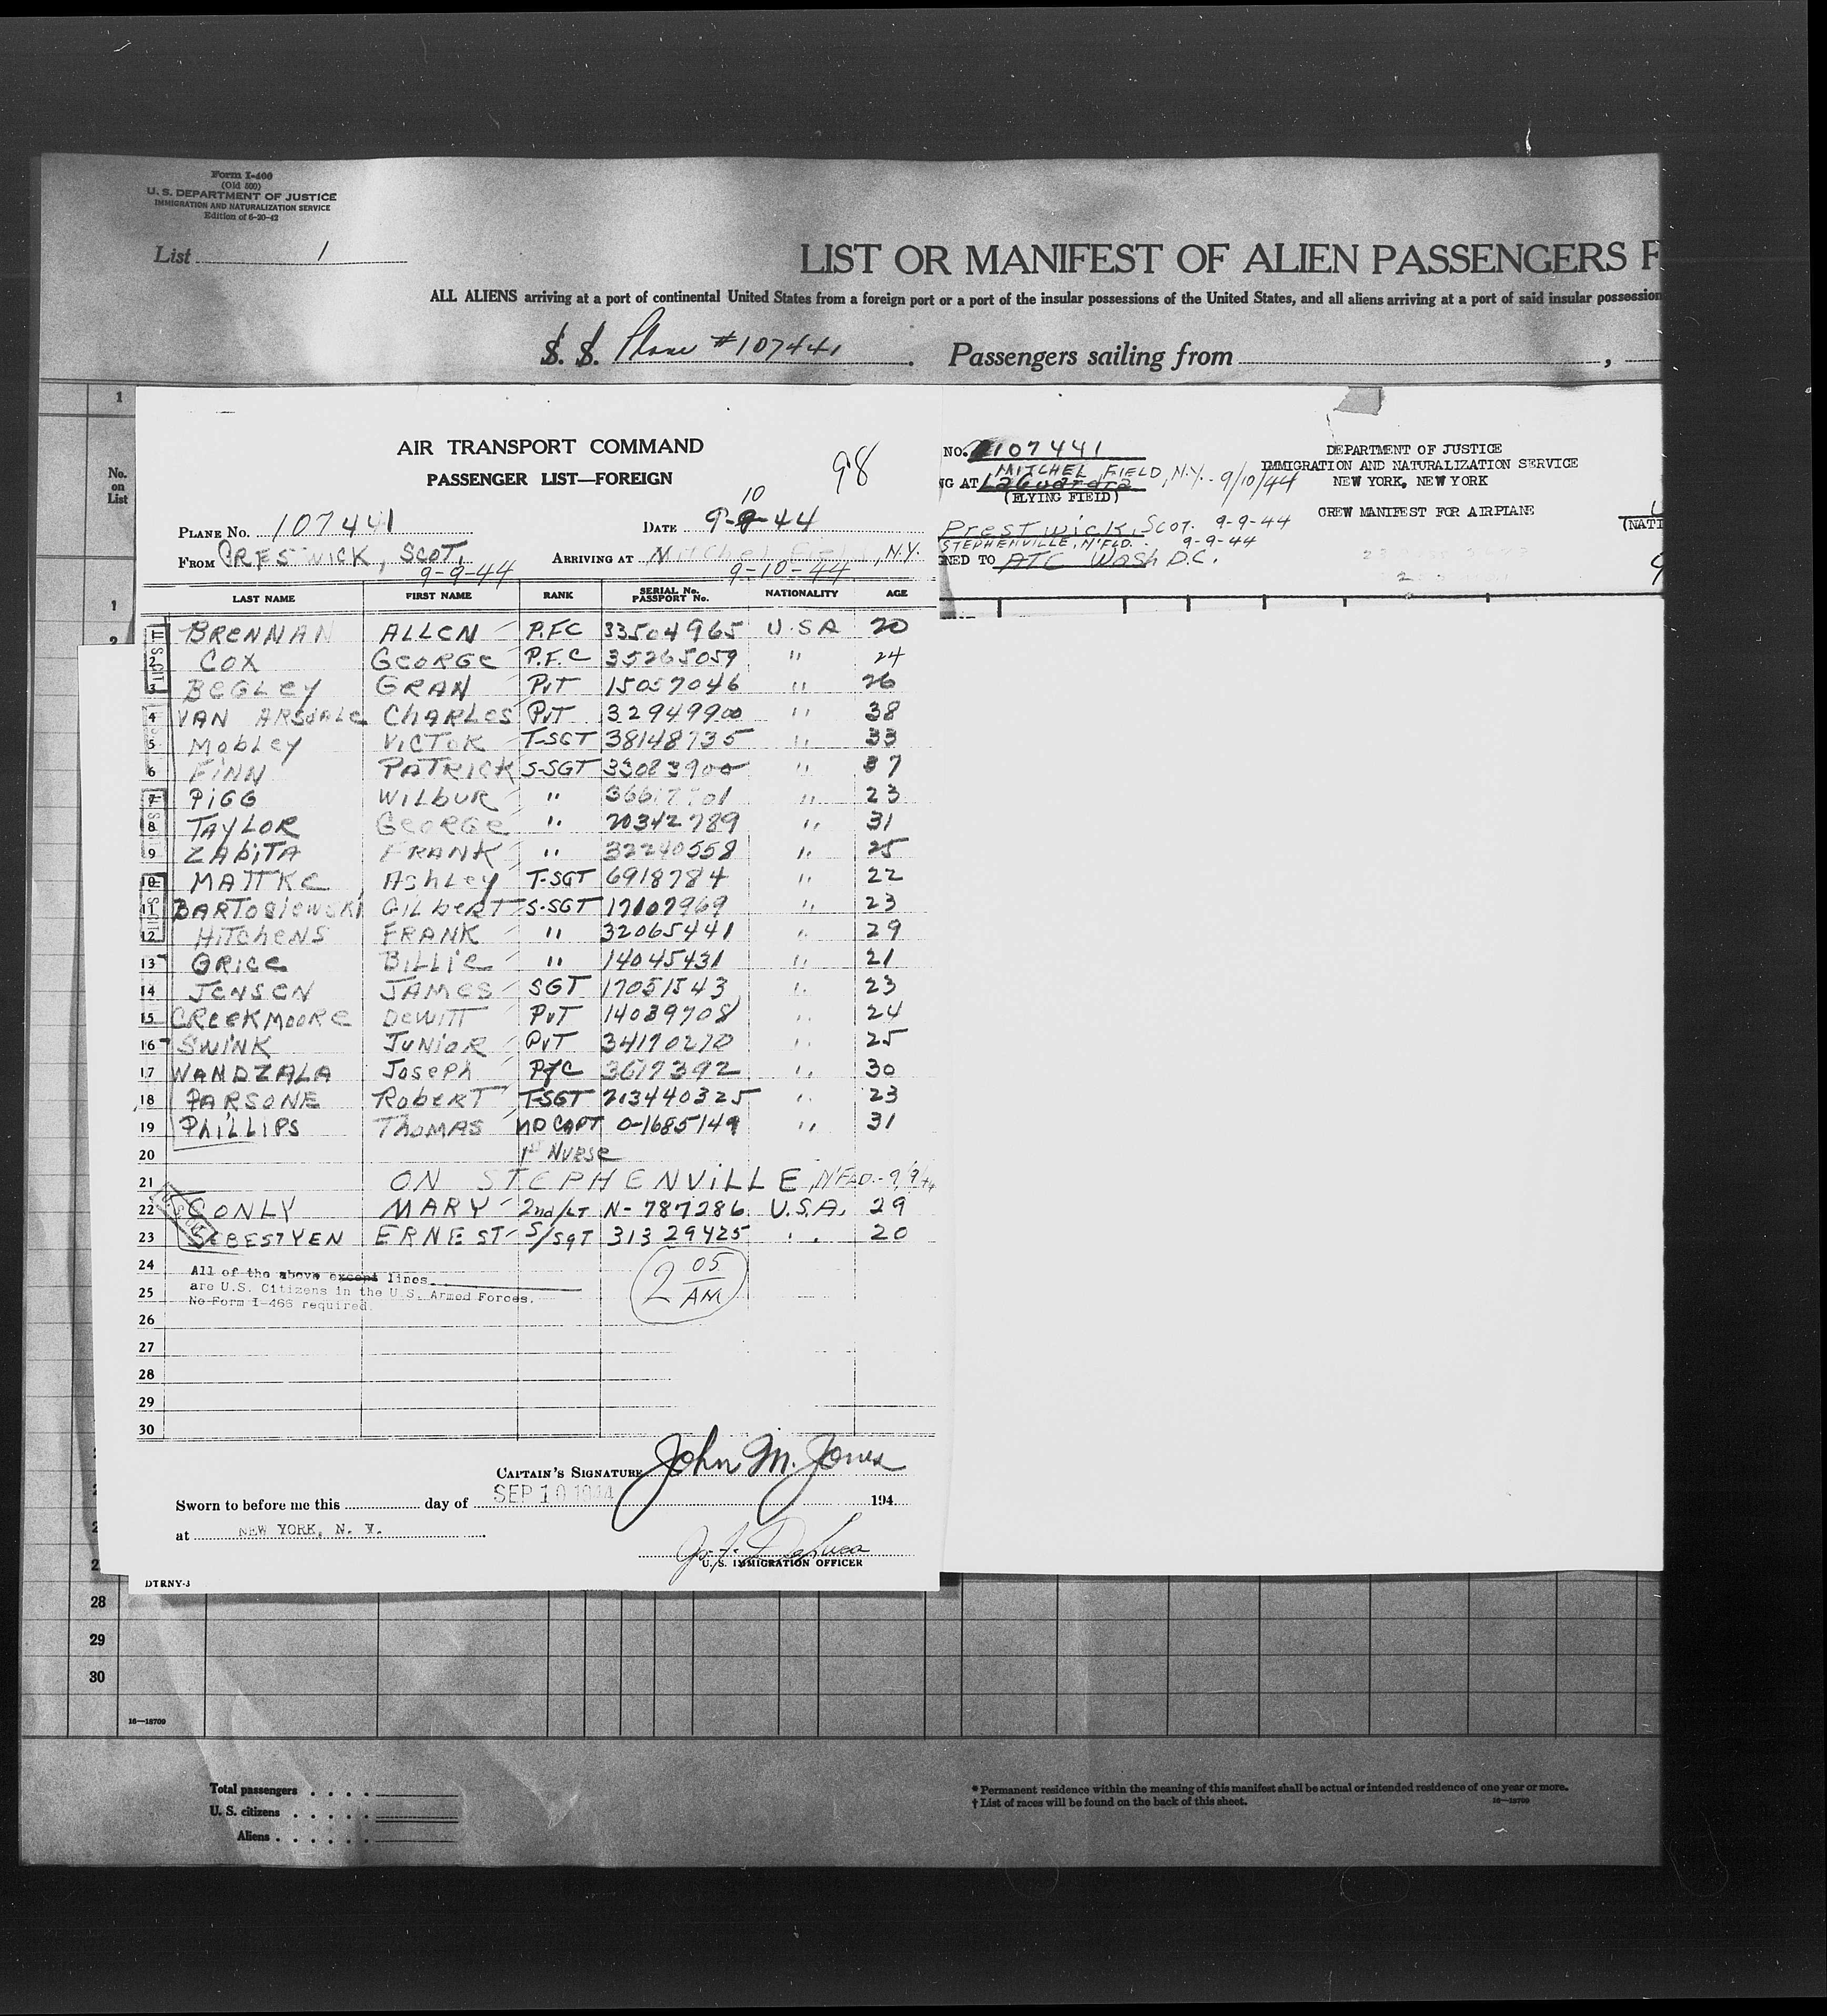 Form I-400
(Old 500)
U. S. DEPARTMENT OF JUSTICE
IMMIGRATION AND NATURALIZATION SERVICE
Edition of 6-20-42
List 1
LIST OR MANIFEST OF ALIEN PASSENGERS F
ALL ALIENS arriving at a port of continental United States from a foreign port or a port of the insular possessions of the United States, and all aliens arriving at a port of said insular possession
S. S. Plane #107441. Passengers sailing from ,
1
No. on List
1
2
AIR TRANSPORT COMMAND
PASSENGER LIST—FOREIGN
98
PLANE No. 107441 DATE 9-9-44
10
FROM CRESTWICK, SCOT. ARRIVING AT Mitchel Field, N.Y.
9-9-44 9-10-44
LAST NAME FIRST NAME RANK SERIAL No. PASSPORT No. NATIONALITY AGE
1 BRENNAN ALLEN P.FC 33504965 U.SA 20
2 COX GEORGE P.F.C 35265059 " 24
3 BEGLEY GRAN PVT 15057046 " 26
4 VAN ARSDALE CHARLES PVT 32949900 " 38
5 MOBLEY VICTOR T-SGT 38148735 " 33
6 FINN PATRICK S-SGT 33083900 " 37
7 PIGG WILBUR " " 23
8 TAYLOR GEORGE " 20342789 " 31
9 ZABITA FRANK " 32240558 " 25
10 MATTKE ASHLEY T-SGT 6918784 " 22
11 BARTOSIEWSKI GILBERT S-SGT 17107969 " 23
12 HITCHENS FRANK " 32065441 " 29
13 GRICE BILLIE " 14045431 " 21
14 JENSEN JAMES SGT 17051543 " 23
15 CREEKMOORE DEWITT PVT 14039708 " 24
16 SWINK JUNIOR PVT 34170270 " 25
17 WANDZALA JOSEPH PfC 3617392 " 30
18 PARSONE ROBERT T-SGT 213440325 " 23
19 PHILLIPS THOMAS MD CAPT 0-1685149 " 31
20 1st NURSE
21 ON STEPHENVILLE, N'FLD.- 9/9/44
22 CONLY MARY 2nd/LT N-787286 U.S.A. 29
23 SEBESTYEN ERNEST S/SgT 31329425 " 20
24 All of the above except lines
25 are U.S. Citizens in the U.S. Armed Forces.
No Form I-466 required.
2 05 AM
26
27
28
29
30
CAPTAIN'S SIGNATURE John M. Jones
Sworn to before me this day of SEP 10 1944 194
at NEW YORK, N. Y.
U. S. IMMIGRATION OFFICER
DTRNY-3
NO. 107441
MITCHEL FIELD, N.Y. - 9/10/44
NG AT LaGuardia
(FLYING FIELD)
Prestwick, Scot. 9-9-44
STEPHENVILLE, N'FLD. 9-9-44
NED TO ATC Wash D.C.
DEPARTMENT OF JUSTICE
IMMIGRATION AND NATURALIZATION SERVICE
NEW YORK, NEW YORK
CREW MANIFEST FOR AIRPLANE
(NATI
28
29
30
16—18709
Total passengers . . . .
U. S. citizens . . . . .
Aliens . . . . . .
* Permanent residence within the meaning of this manifest shall be actual or intended residence of one year or more.
† List of races will be found on the back of this sheet.
16—18709